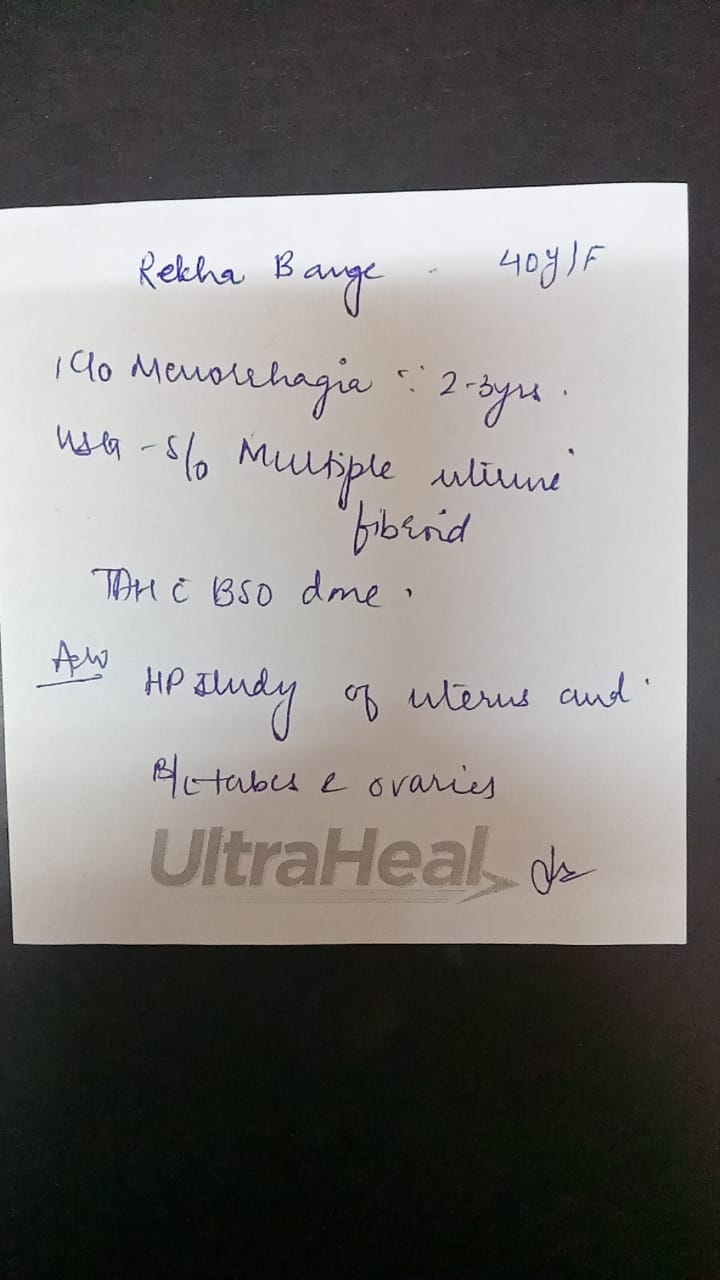 Rekha Bange 40y/F
c/o Menorrhagia ∵ 2-3yrs.
USG - S/o Multiple uterine
fibroid
TAH c̄ BSO done.
Adv
HP study of uterus and
B/L tubes & ovaries
UltraHeal